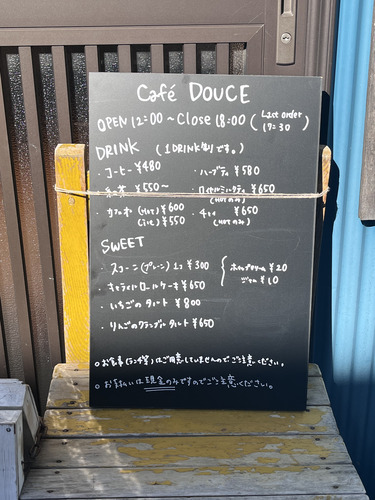 Café DOUCE
OPEN 12:00 ~ Close 18:00 (Last order 17:30)
DRINK (1DRINK制です。)
・コーヒー ¥480 ・ハーブティ ¥580
・紅茶 ¥550~ ・ロイヤルミルクティ ¥650 (HOTのみ)
・カフェオレ (Hot) ¥600 ・チャイ ¥650
(ice) ¥550 (HOTのみ)
SWEET
・スコーン(プレーン) 1コ ¥300 ホイップクリーム ¥20
ジャム ¥10
・キャラメルロールケーキ ¥650
・いちごのタルト ¥800
・りんごのクランブルタルト ¥650
○お食事(ランチ等)はご用意していませんのでご注意ください。
○お支払いは現金のみですのでご注意ください。